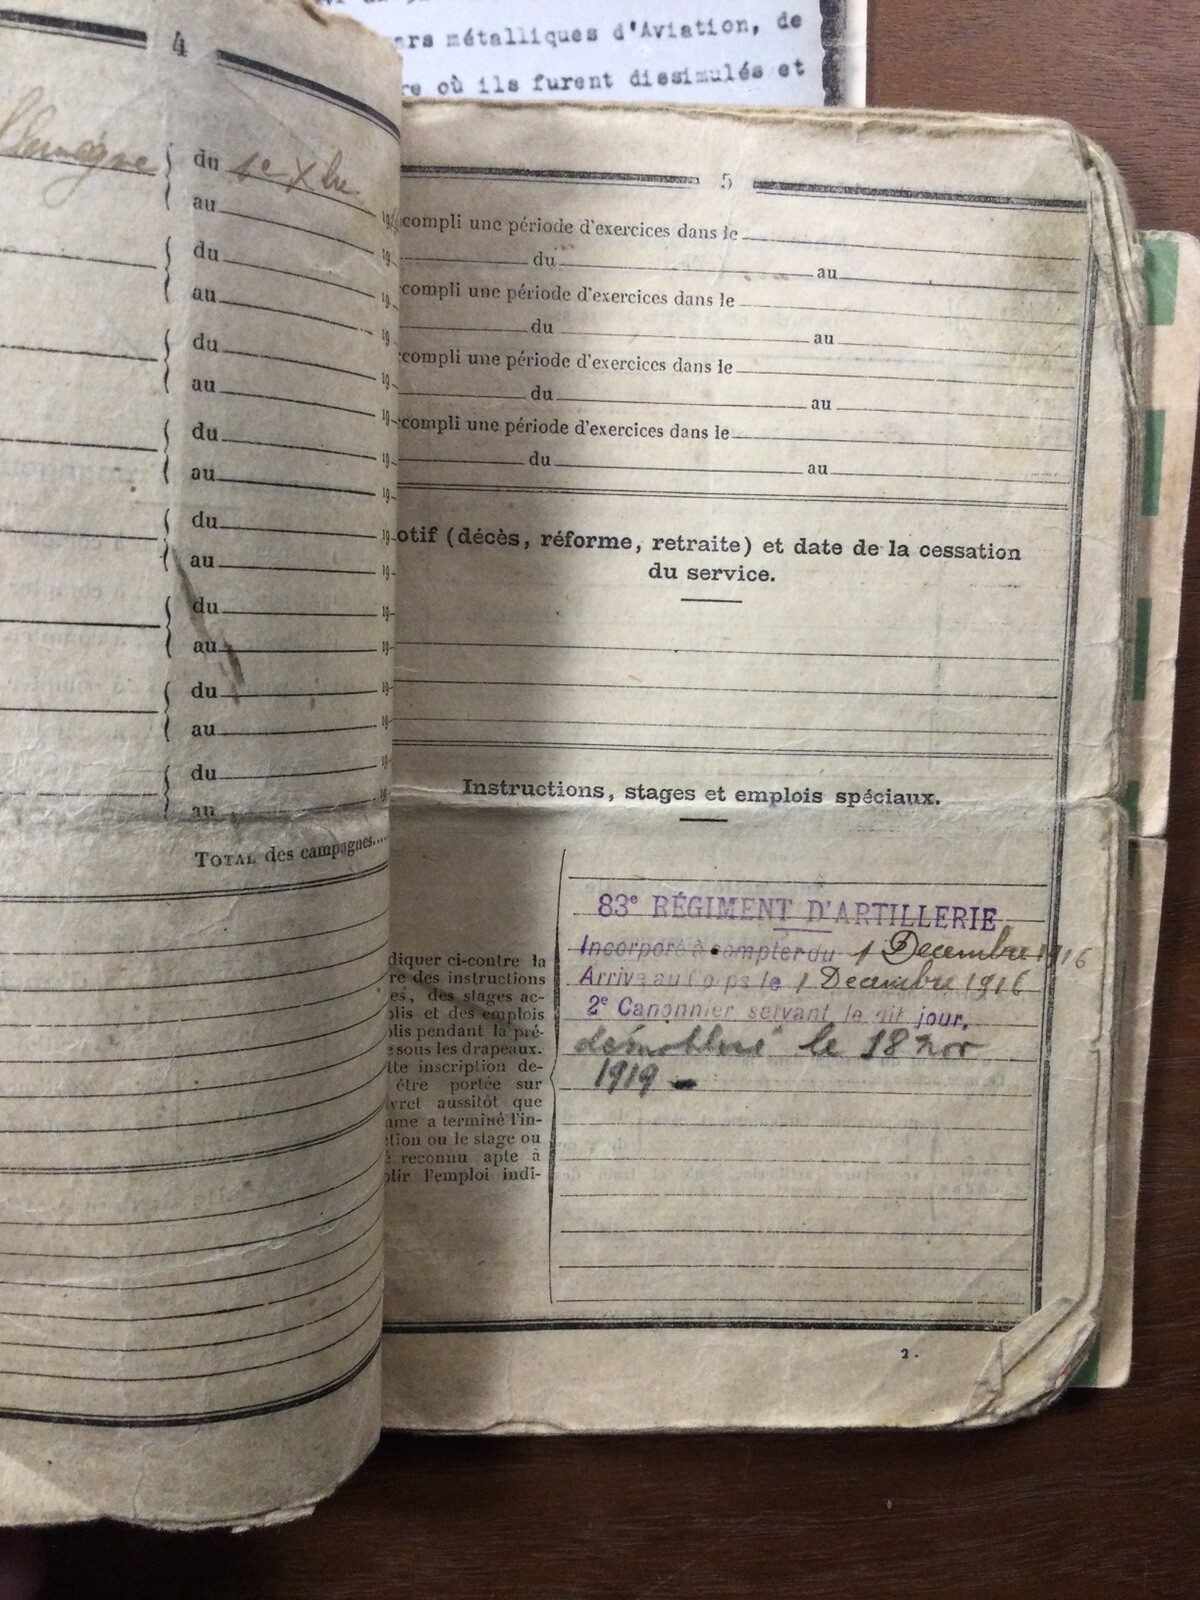 ars métalliques d'Aviation, de
re où ils furent dissimulés et
4
llemagne du 1e Xbre
au 19
du 19
au 19
du 19
au 19
du 19
au 19
du 19
au 19
du 19
au 19
du 19
au 19
du 19
au 19
TOTAL des campagnes....
5
compli une période d'exercices dans le
du au
compli une période d'exercices dans le
du au
compli une période d'exercices dans le
du au
compli une période d'exercices dans le
du au
otif (décès, réforme, retraite) et date de la cessation
du service.
Instructions, stages et emplois spéciaux.
diquer ci-contre la
re des instructions
es, des stages ac-
plis et des emplois
plis pendant la pré-
e sous les drapeaux.
tte inscription de-
être portée sur
ivret aussitôt que
mme a terminé l'in-
ction ou le stage ou
é reconnu apte à
plir l'emploi indi-
83e RÉGIMENT D'ARTILLERIE
Incorporé à compter du 1 Decembre 1916
Arrivé au Corps le 1 Decembre 1916
2e Canonnier servant le dit jour.
démobilisé le 18 nov
1919
2.